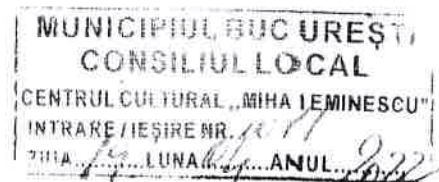 MUNICIPIUL BUCUREȘTI
CONSILIUL LOCAL
CENTRUL CULTURAL „MIHAI EMINESCU"
INTRARE/IEȘIRE NR.
ZIUA LUNA ANUL 2022